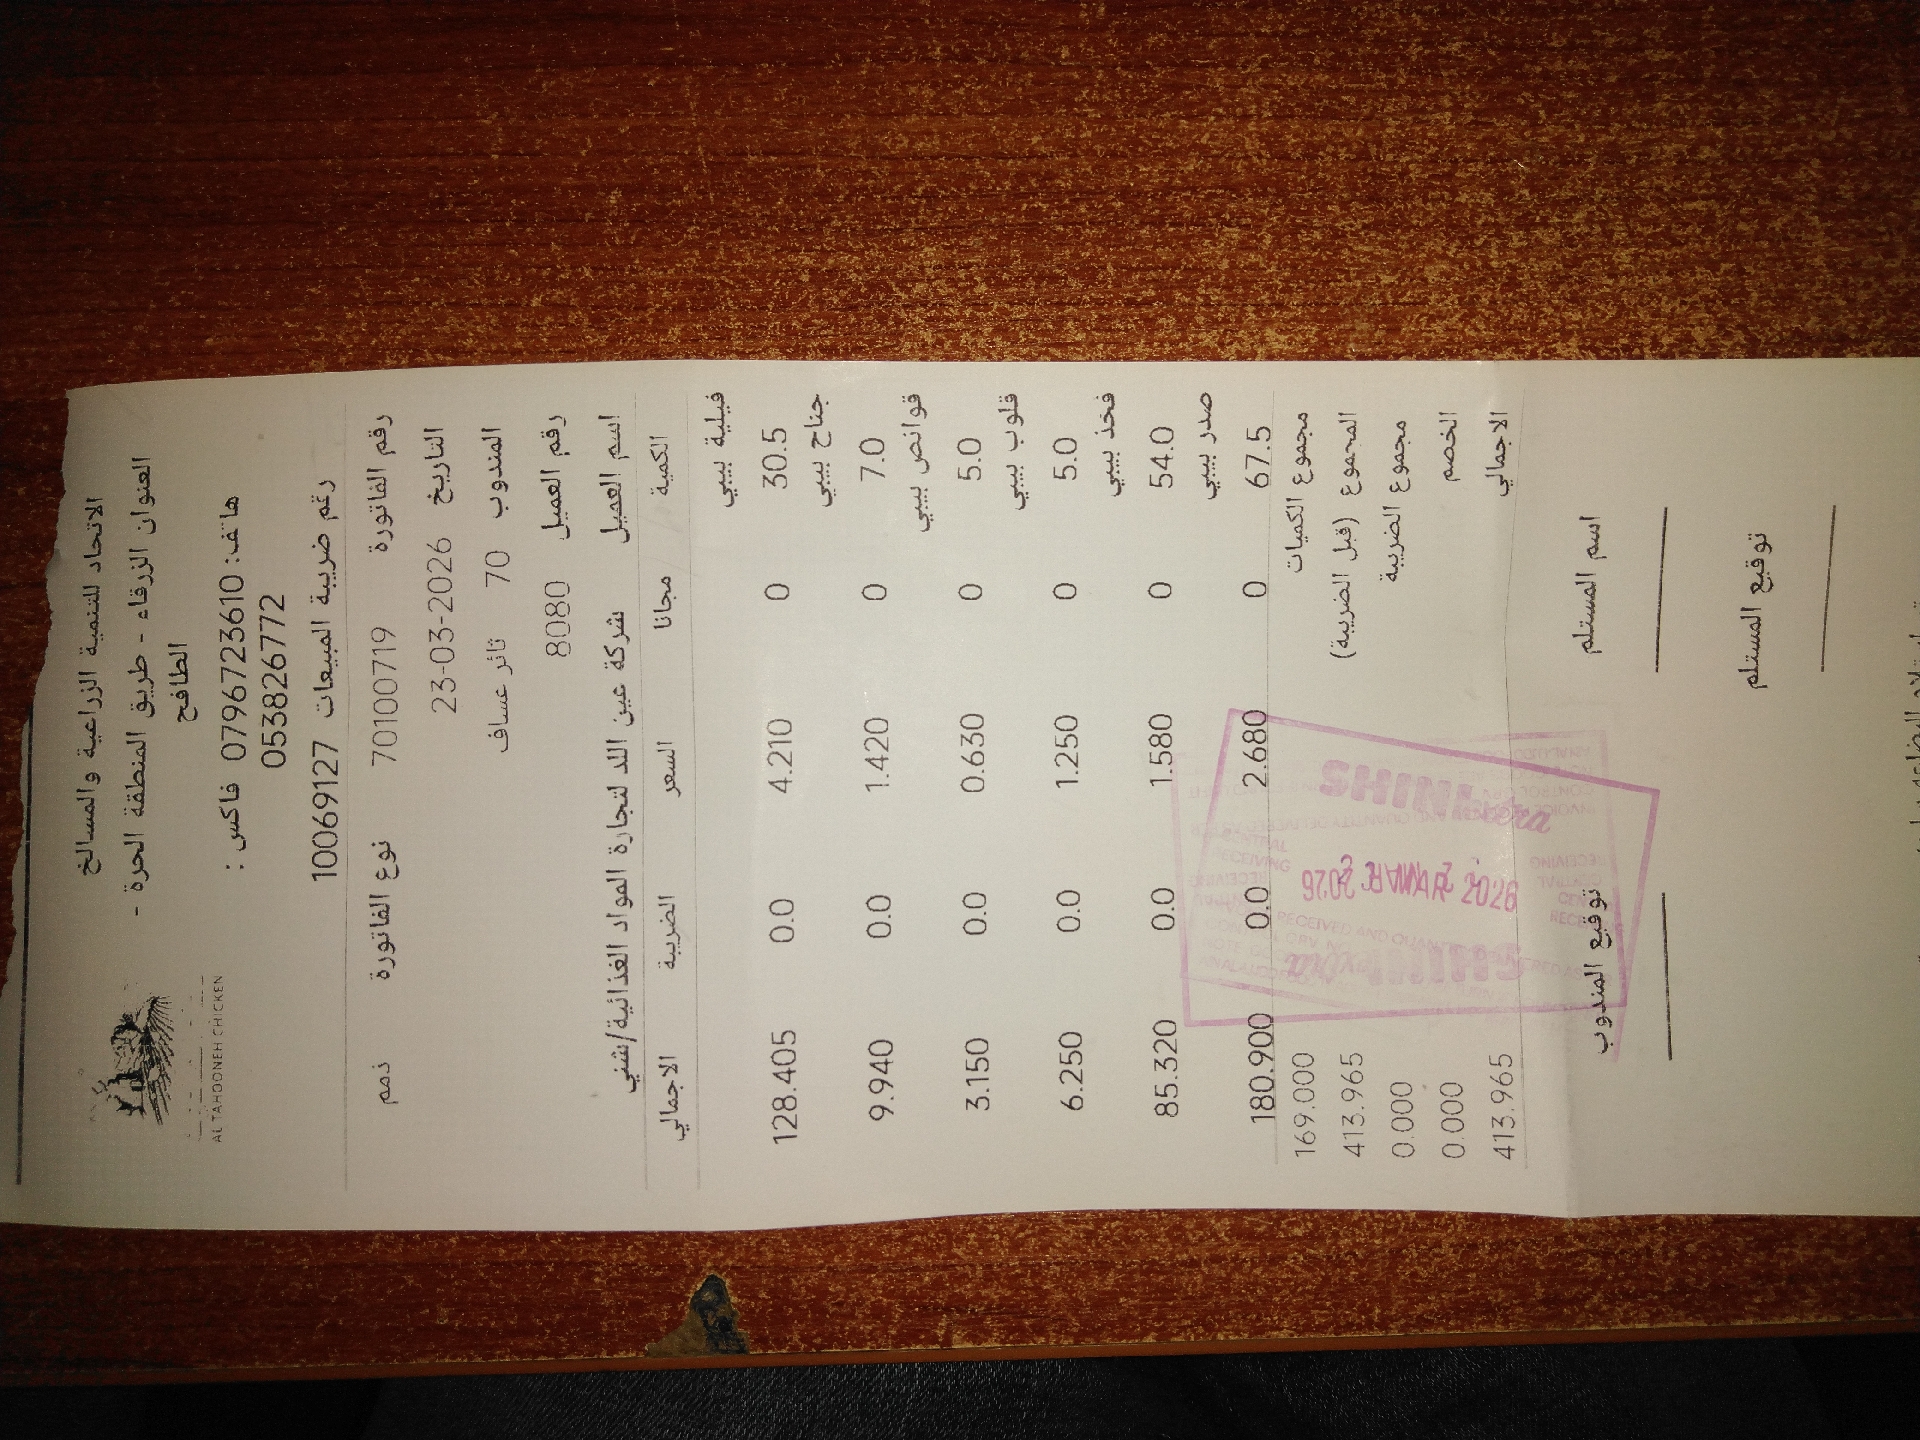 AL TAHOONEH CHICKEN
الاتحاد للتنمية الزراعية والمسالخ
العنوان الزرقاء - طريق المنطقة الحرة -
الطافح
هاتف: 0796723610 فاكس :
053826772
رقم ضريبة المبيعات 10069127
رقم الفاتورة 70100719 نوع الفاتورة ذمم
التاريخ 23-03-2026
المندوب 70 ثائر عساف
رقم العميل 8080
اسم العميل شركة عين اللد لتجارة المواد الغذائية/شني
الكمية مجانا السعر الضريبة الاجمالي
فيلية بيبي
30.5 0 4.210 0.0 128.405
جناح بيبي
7.0 0 1.420 0.0 9.940
قوانص بيبي
5.0 0 0.630 0.0 3.150
قلوب بيبي
5.0 0 1.250 0.0 6.250
فخذ بيبي
54.0 0 1.580 0.0 85.320
صدر بيبي
67.5 0 2.680 0.0 180.900
مجموع الكميات 169.000
المجموع (قبل الضريبة) 413.965
مجموع الضريبة 0.000
الخصم 0.000
الاجمالي 413.965
اسم المستلم توقيع المندوب
توقيع المستلم
CENTRAL
RECEIVING
RECEIVED AND
MAR 2026